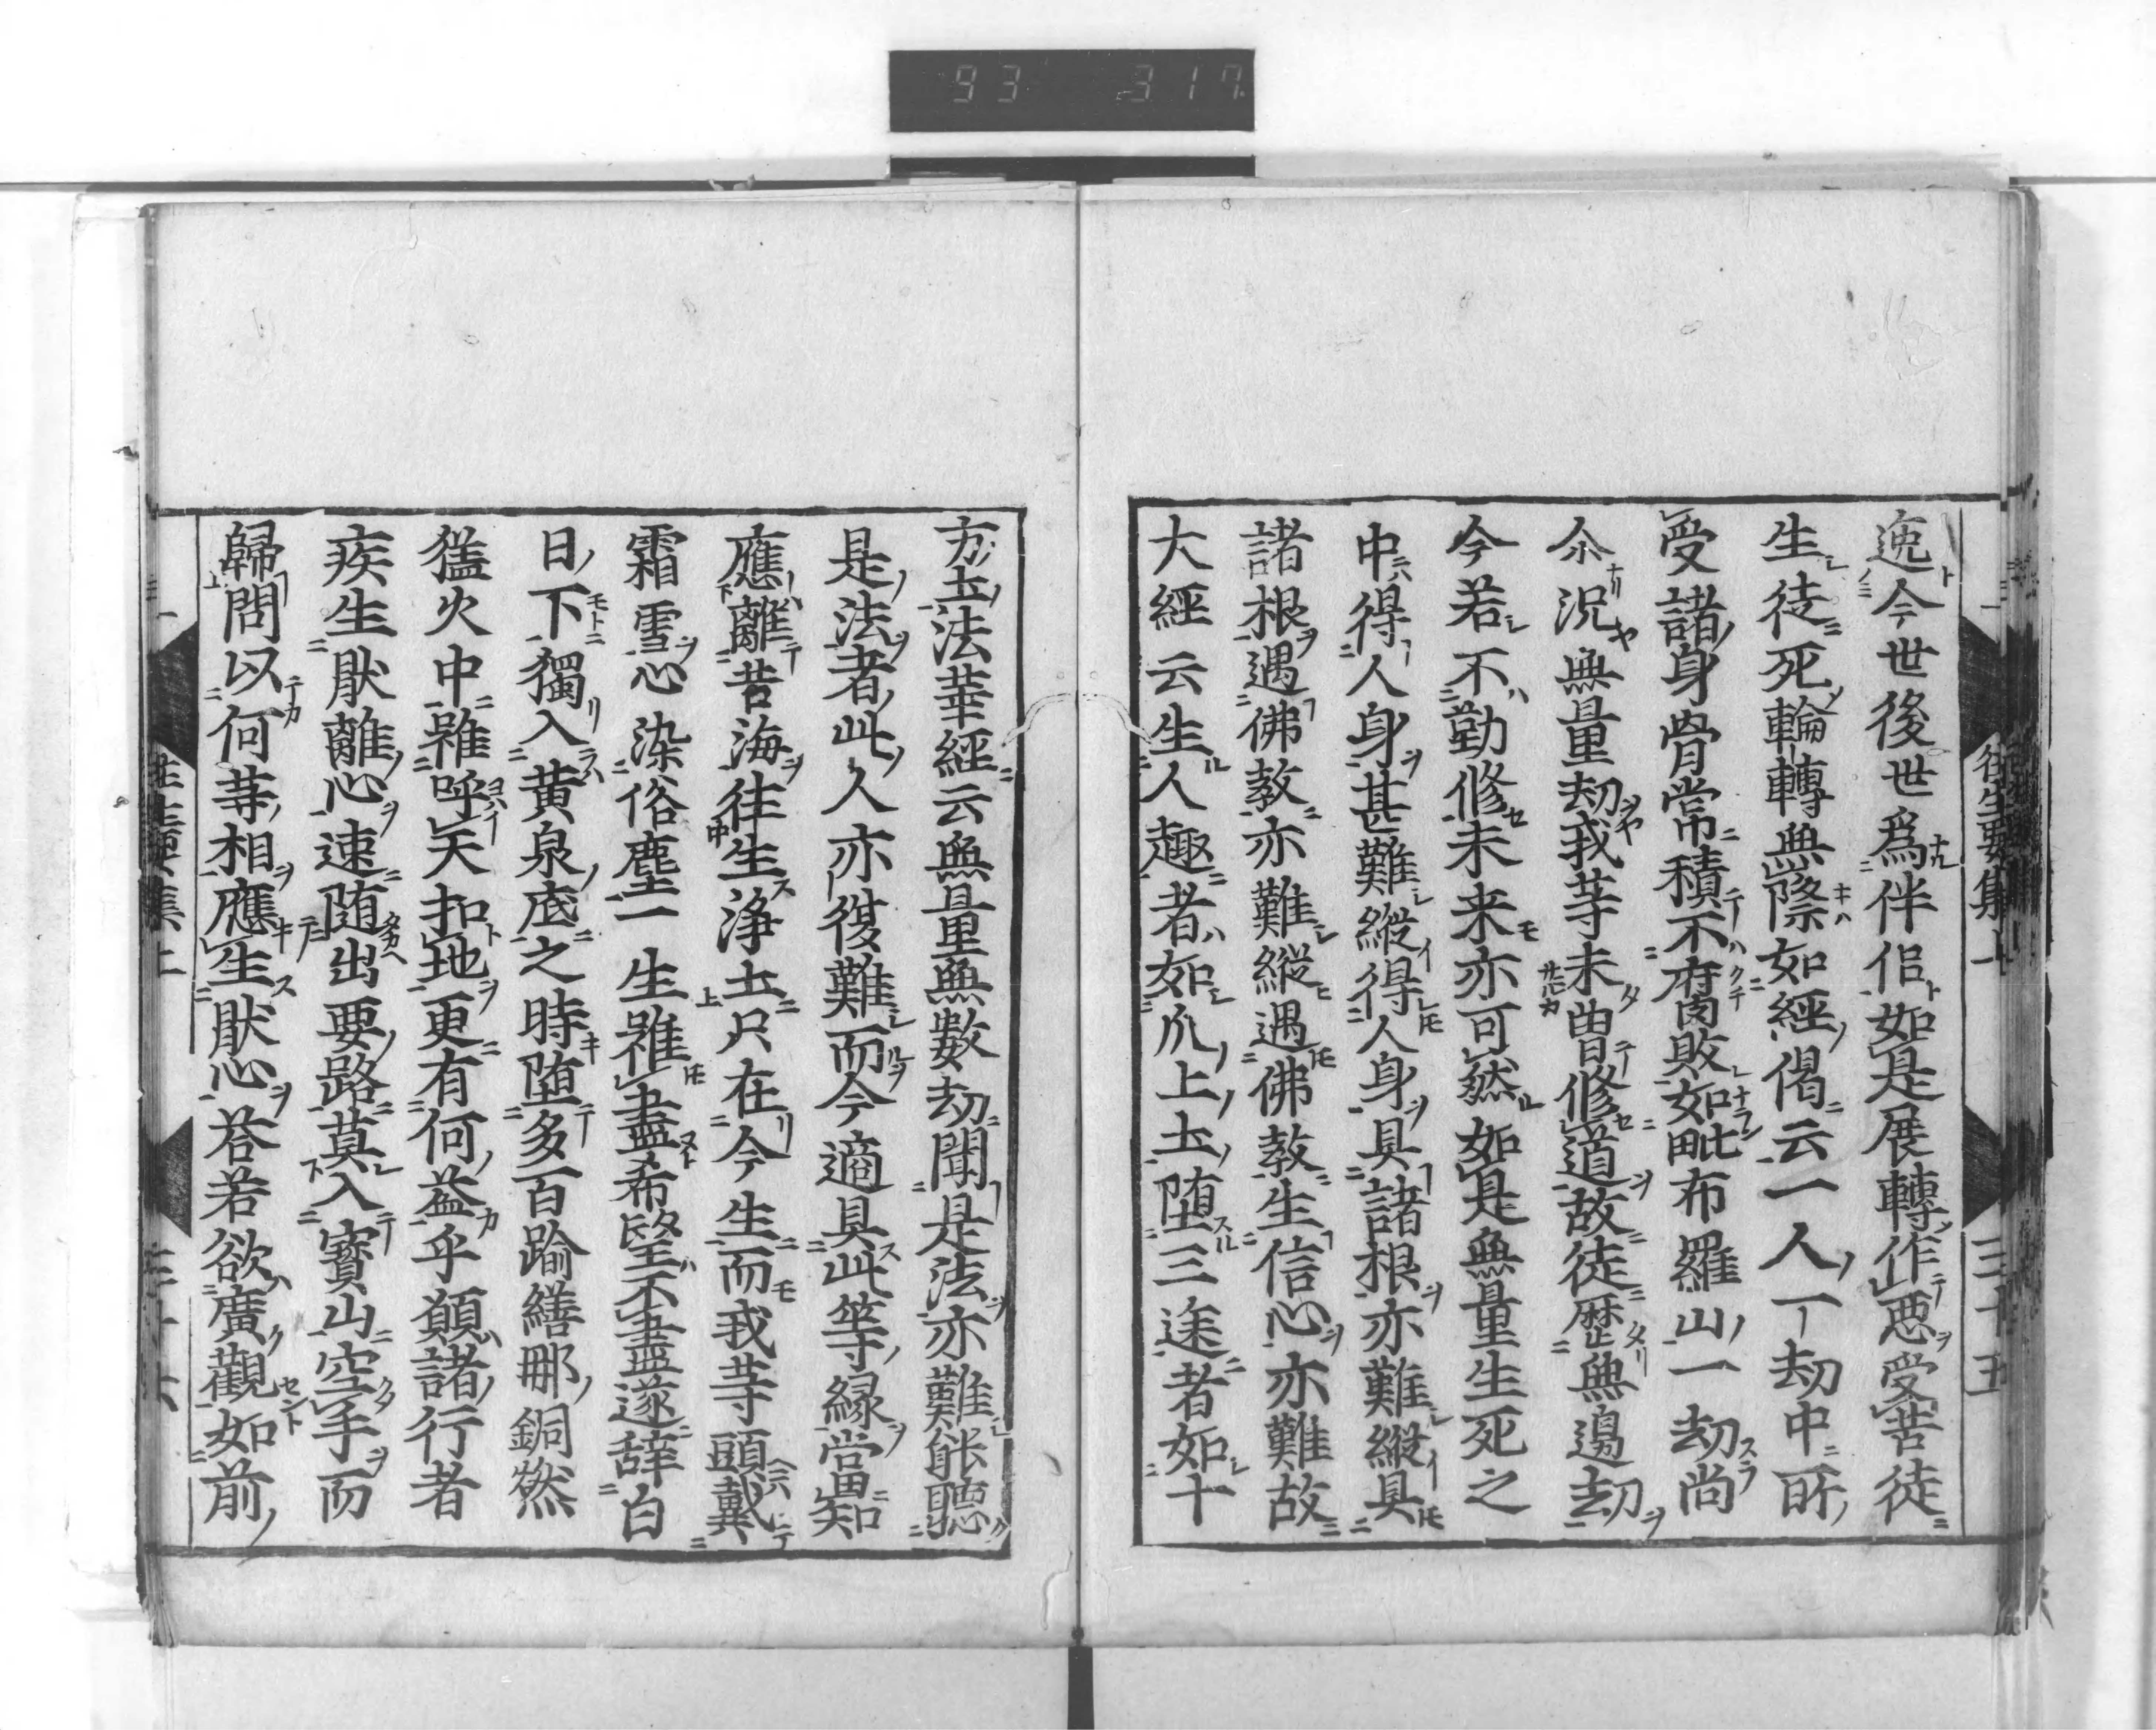 迯今世後世爲伴侶如是展轉作惡受苦徒
生徒死輪轉無際如經偈云一人一劫中所
受諸身骨常積不腐敗如毗布羅山一劫尚
尒況無量劫我等未曽修道故徒歴無邊劫
今若不勤修未来亦可然如是無量生死之
中得人身甚難縱得人身具諸根亦難縱具
諸根遇佛教亦難縱遇佛教生信心亦難故
大經云生人趣者如爪上土堕三途者如十
方土法華經云無量無數劫聞是法亦難能聽
是法者此人亦復難而今適具此等縁當知
應離苦海往生淨土只在今生而我等頭戴
霜雪心染俗塵一生雖盡希望不盡遂辞白
日下獨入黄泉底之時堕多百踰繕那銅燃
猛火中雖呼天扣地更有何益乎願諸行者
疾生猒離心速随出要路莫入寳山空手而
歸問以何等相應生猒心荅若欲廣觀如前
往生要集上
三十五
三十六
93 317